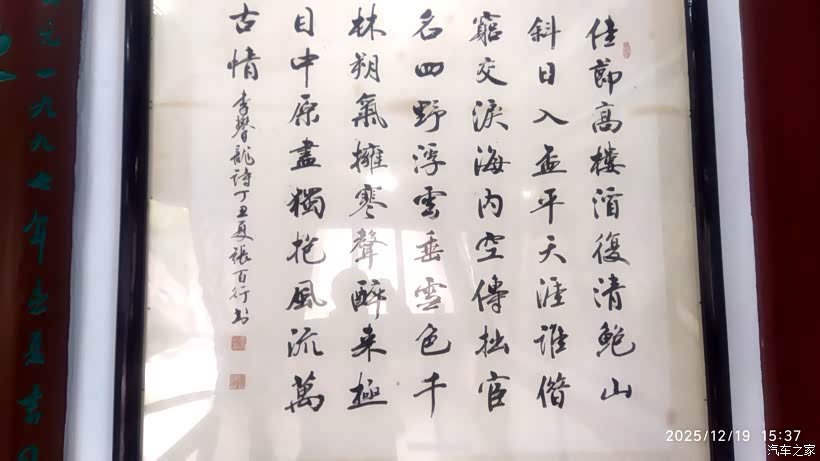 佳節高樓酒復清鮑山
斜日入盃平天涯誰借
窮交淚海內空傳拙宦
名四野浮雲垂雪色千
林朔氣擁寒聲醉來極
目中原盡獨抱風流萬
古情
李攀龍詩丁丑夏張百行书
元一九九七年孟夏吉日
2025/12/19 15:37
汽车之家